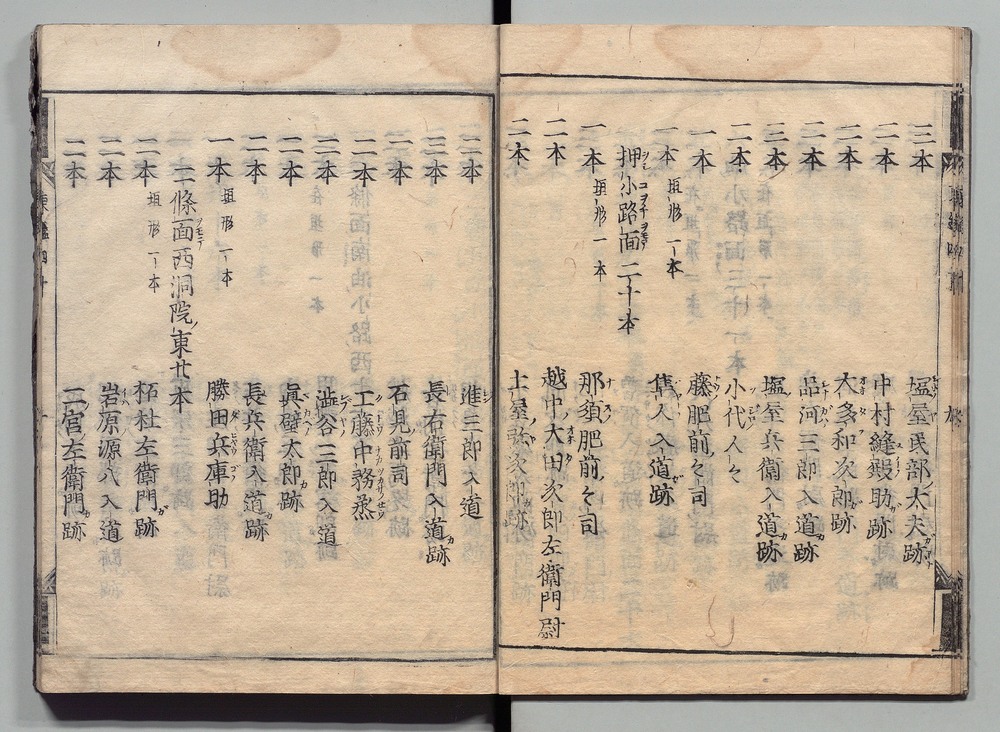 三本 塩屋民部ノ太夫跡
二本 中村縫殿助跡
二本 大多和次郎跡
二本 品河三郎入道跡
三本 塩屋兵衛入道跡
二本 小代ノ人々
一本 藤肥前々司
一本 垣形一本 隼人入道跡
押小路面二十本
一本 垣形一本 那須肥前々司
二本 越中ノ大田次郎左衛門尉
二本 土屋弥次郎跡
二本 進三郎入道
三本 長右衛門入道跡
二本 石見前司
二本 工藤中務丞
二本 澁谷三郎入道
二本 眞壁太郎跡
二本 長兵衛入道跡
一本 垣形一本 勝田兵庫助
二條面西洞院ノ東廿本
一本 垣形一本 柘杜左衛門跡
二本 岩原源八入道
二本 二宮左衛門跡